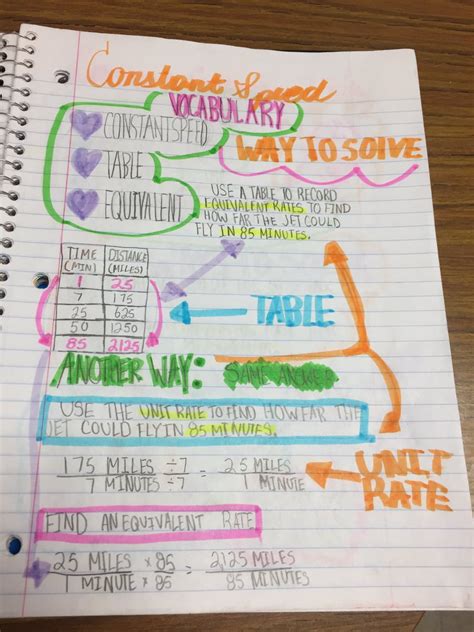 Constant Speed
VOCABULARY
CONSTANT SPEED
TABLE
EQUIVALENT
WAY TO SOLVE
USE A TABLE TO RECORD
EQUIVALENT RATES TO FIND
HOW FAR THE JET COULD
FLY IN 85 MINUTES.
TIME (MIN) DISTANCE (MILES)
1 25
7 175
25 625
50 1250
85 2125
TABLE
ANOTHER WAY:
USE THE UNIT RATE TO FIND HOW FAR THE
JET COULD FLY IN 85 MINUTES.
175 MILES ÷7 = 25 MILES
7 MINUTES ÷7 1 MINUTE
UNIT
RATE
FIND AN EQUIVALENT RATE
25 MILES × 85 = 2125 MILES
1 MINUTE × 85 85 MINUTES